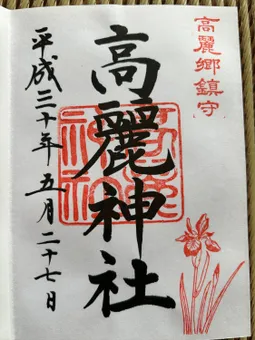 高麗郷鎮守
高麗神社
平成三十年五月二十七日